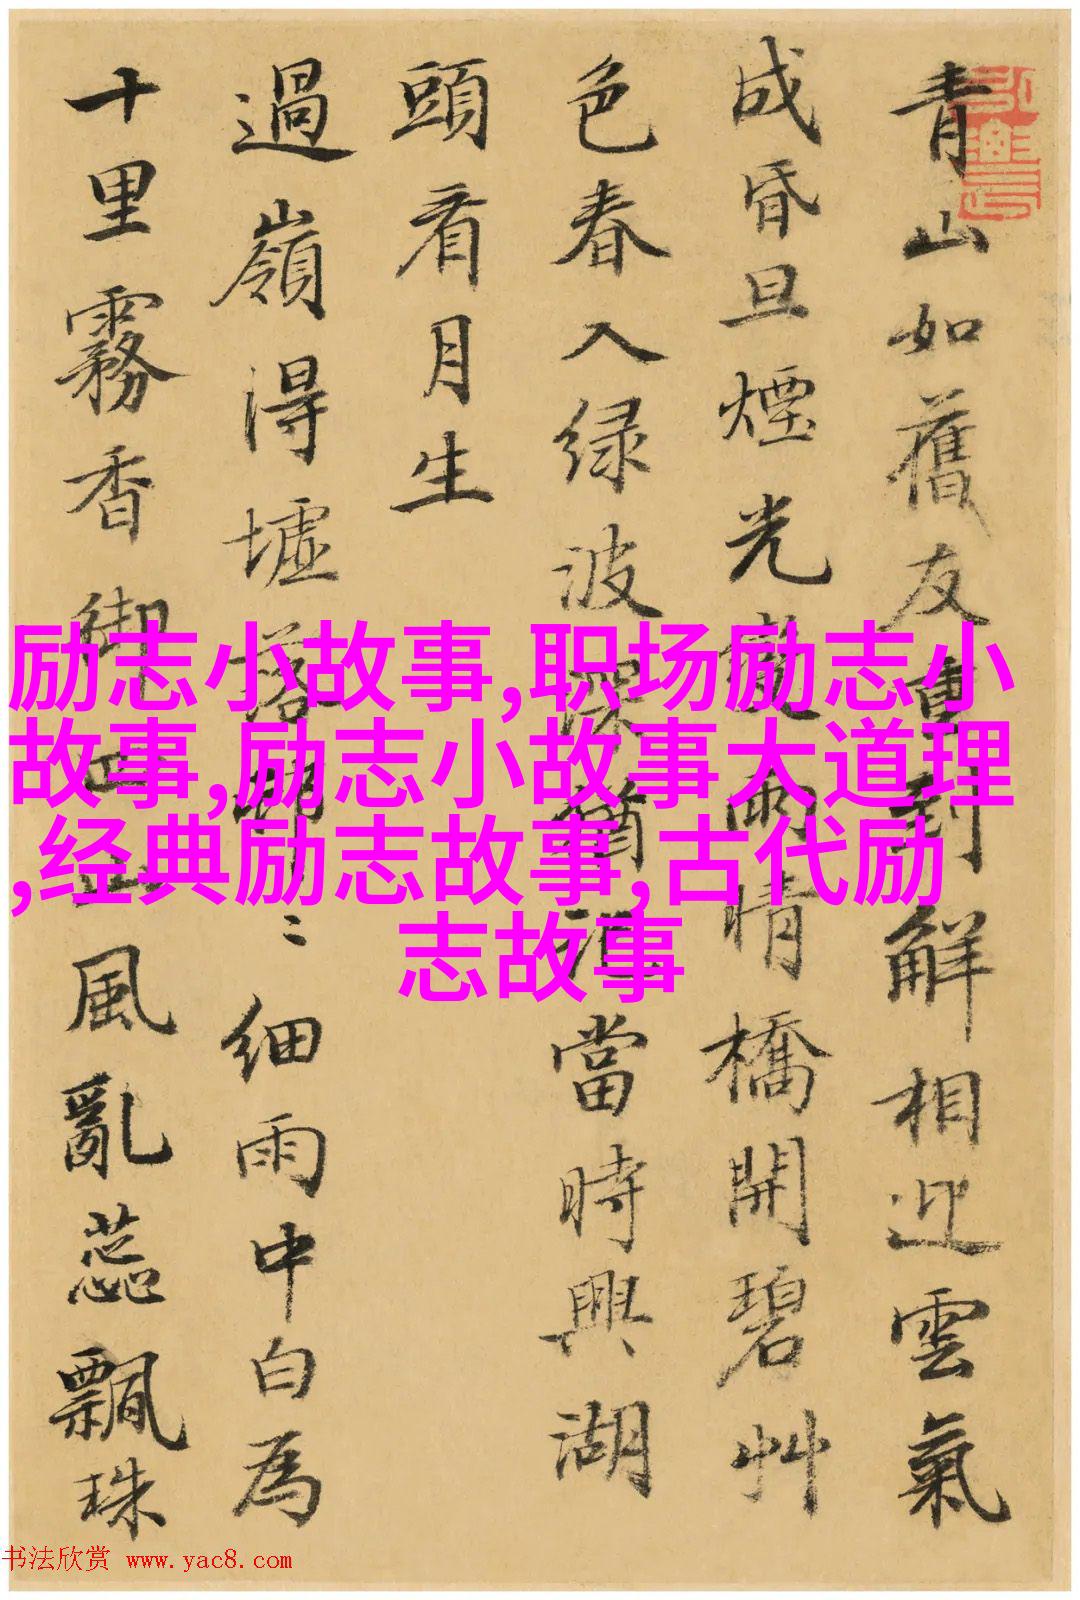 青山如舊友重對解相迎雲氣
成昏旦煙光變雨晴橋開碧艸
色春入绿波深猶記當時興湖
頭看月生
過嶺得墟落ミ細雨中白為
十里霧香御四山風亂蕊飄珠
励志小故事,职场励志小
故事,励志小故事大道理
,经典励志故事,古代励
志故事
书法欣赏 www.yac8.com